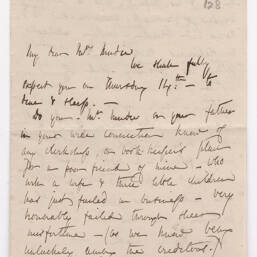 128
My dear Mrs. 
We shall fully
expect you on Thursday 14th - to
dine & sleep. -
Do you - Mrs. or your father
in your wide connection know of
any clerkship, or book-keeper's place
for a poor friend of mine - who
with a wife & three little children
has just failed in business - very
honorably failed through sheer
misfortune - (as we know being
unluckily among the creditors.)